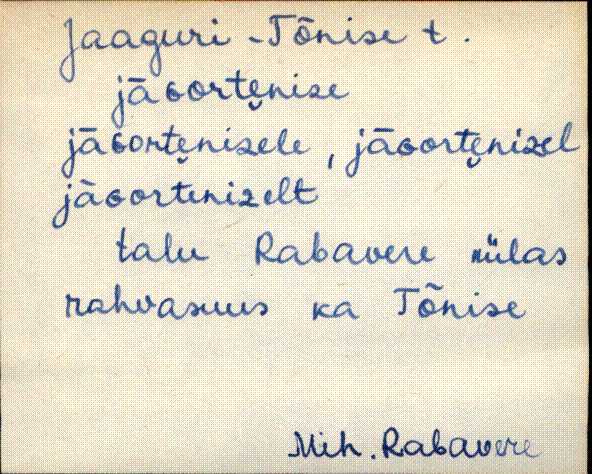 Jaaguri-Tõnise t.
jāɢorte̮nise
jāɢorte̮nisele, jāɢorte̮nisel
jāɢortenizelt
talu Rabavere külas
rahvasuus ka Tõnise
Mih. Rabavere